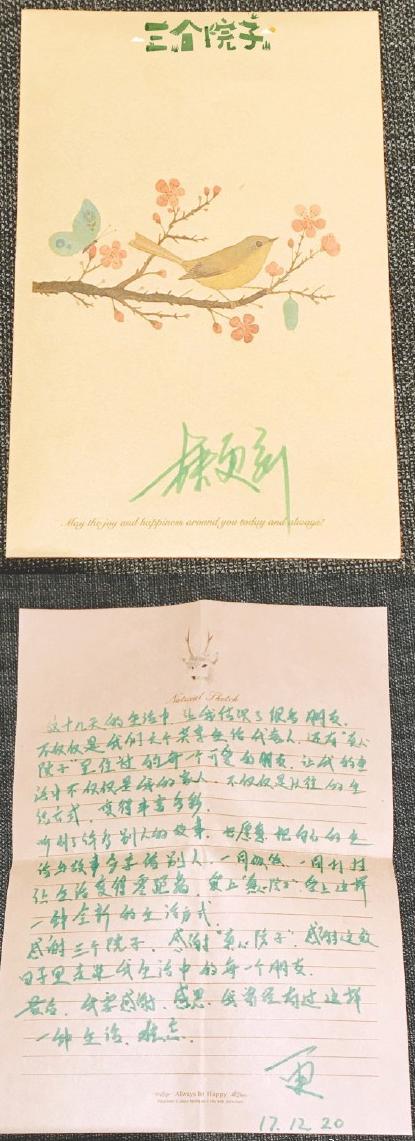 三个院子
May the joy and happiness around you today and always!
Natural Sketch
这十几天的生活中，让我结识了很多朋友，
不仅仅是我们七个共享生活代言人，还有“真心
院子”里住过的每一个可爱的朋友，让我的生
活中不仅仅是我的家人，不仅仅是以往的生
活方式，变得丰富多彩。
听到了许多别人的故事，也愿意把自己的生
活与故事分享给别人，一同做饭、一同打扫
让生活变得零距离，爱上“真心院子”爱上这样
一种全新的生活方式
感谢三个院子，感谢“真心院子”，感谢这段
日子里走进我生活中的每一个朋友。
最后，我要感谢、感恩，我曾经有过这样
一种生活，难忘。
Always Be Happy
17.12.20